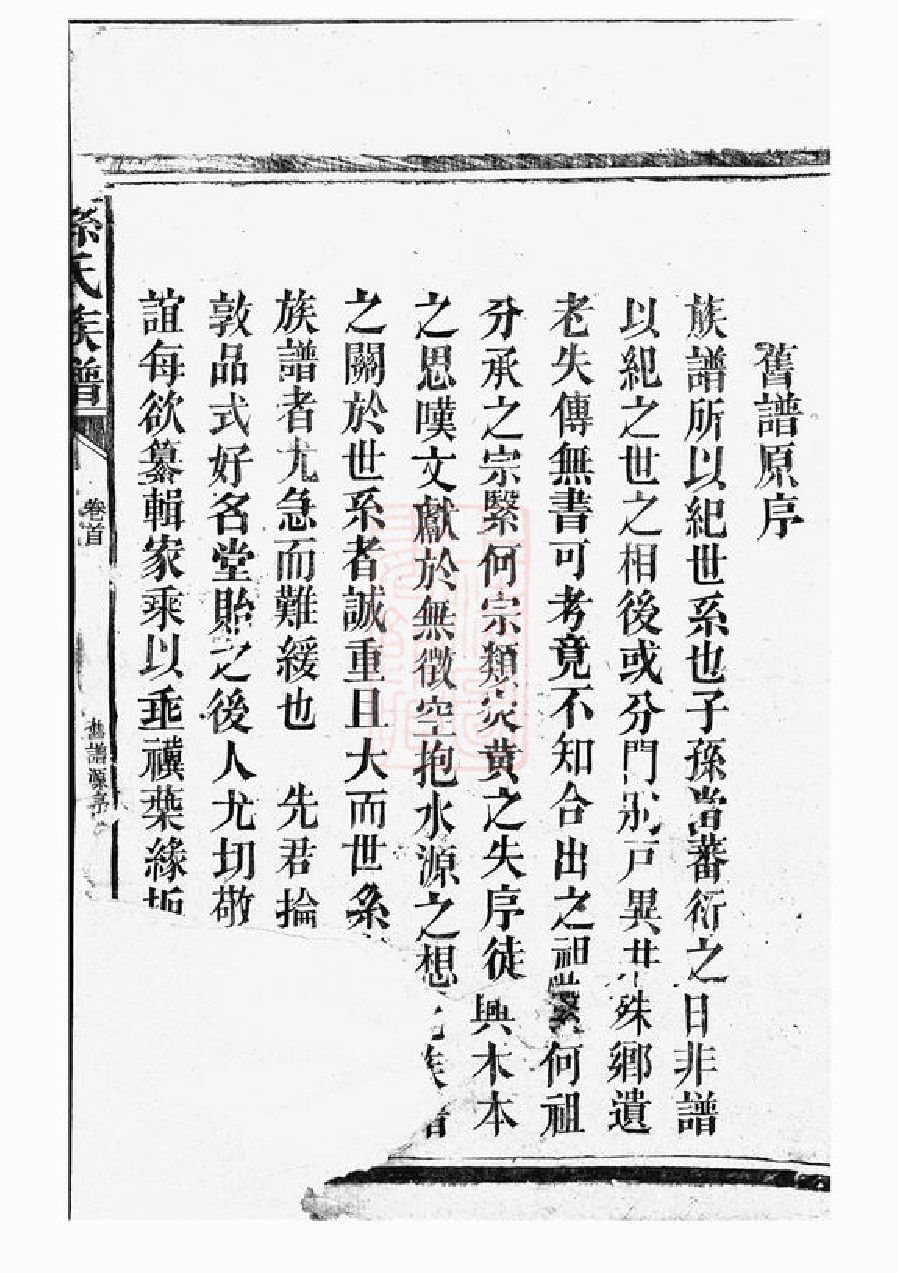 舊譜原序
族譜所以紀世系也子孫當蕃衍之日非譜
以紀之世之相後或分門別戶異井殊鄉遺
老失傳無書可考竟不知合出之祖繫何祖
分承之宗繫何宗類炎黄之失序徒興木本
之思嘆文獻於無徴空抱水源之想 族
之關於世系者誠重且大而世系
族譜者尤急而難緩也 先君掄
敦品式好名堂貽之後人尤切敬
誼每欲纂輯家乘以乖襀葉緣
孫氏族譜
卷首
舊譜源序